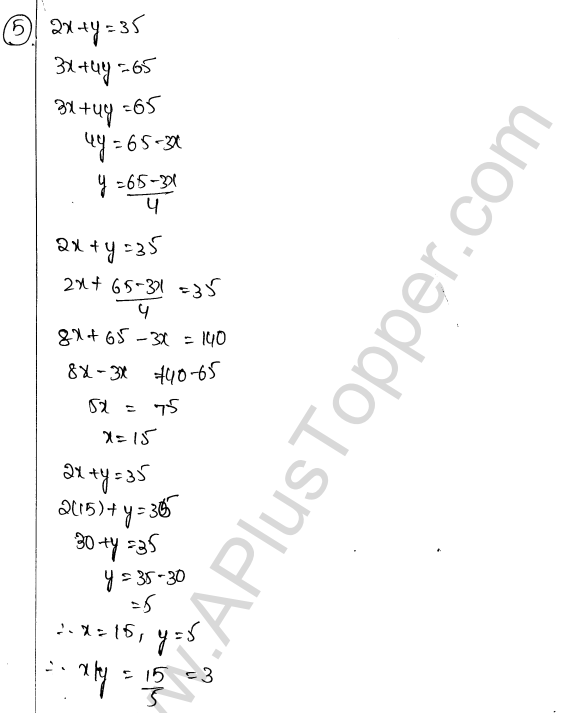 5 2x+y=35
3x+4y=65
3x+4y=65
4y=65-3x
y=65-3x/4
2x+y=35
2x+ 65-3x/4 =35
8x+65-3x=140
8x-3x 140-65
5x = 75
x=15
2x+y=35
2(15)+y=35
30+y=35
y=35-30
=5
∴x=15, y=5
∴ x/y = 15/5 =3
www.APlusTopper.com